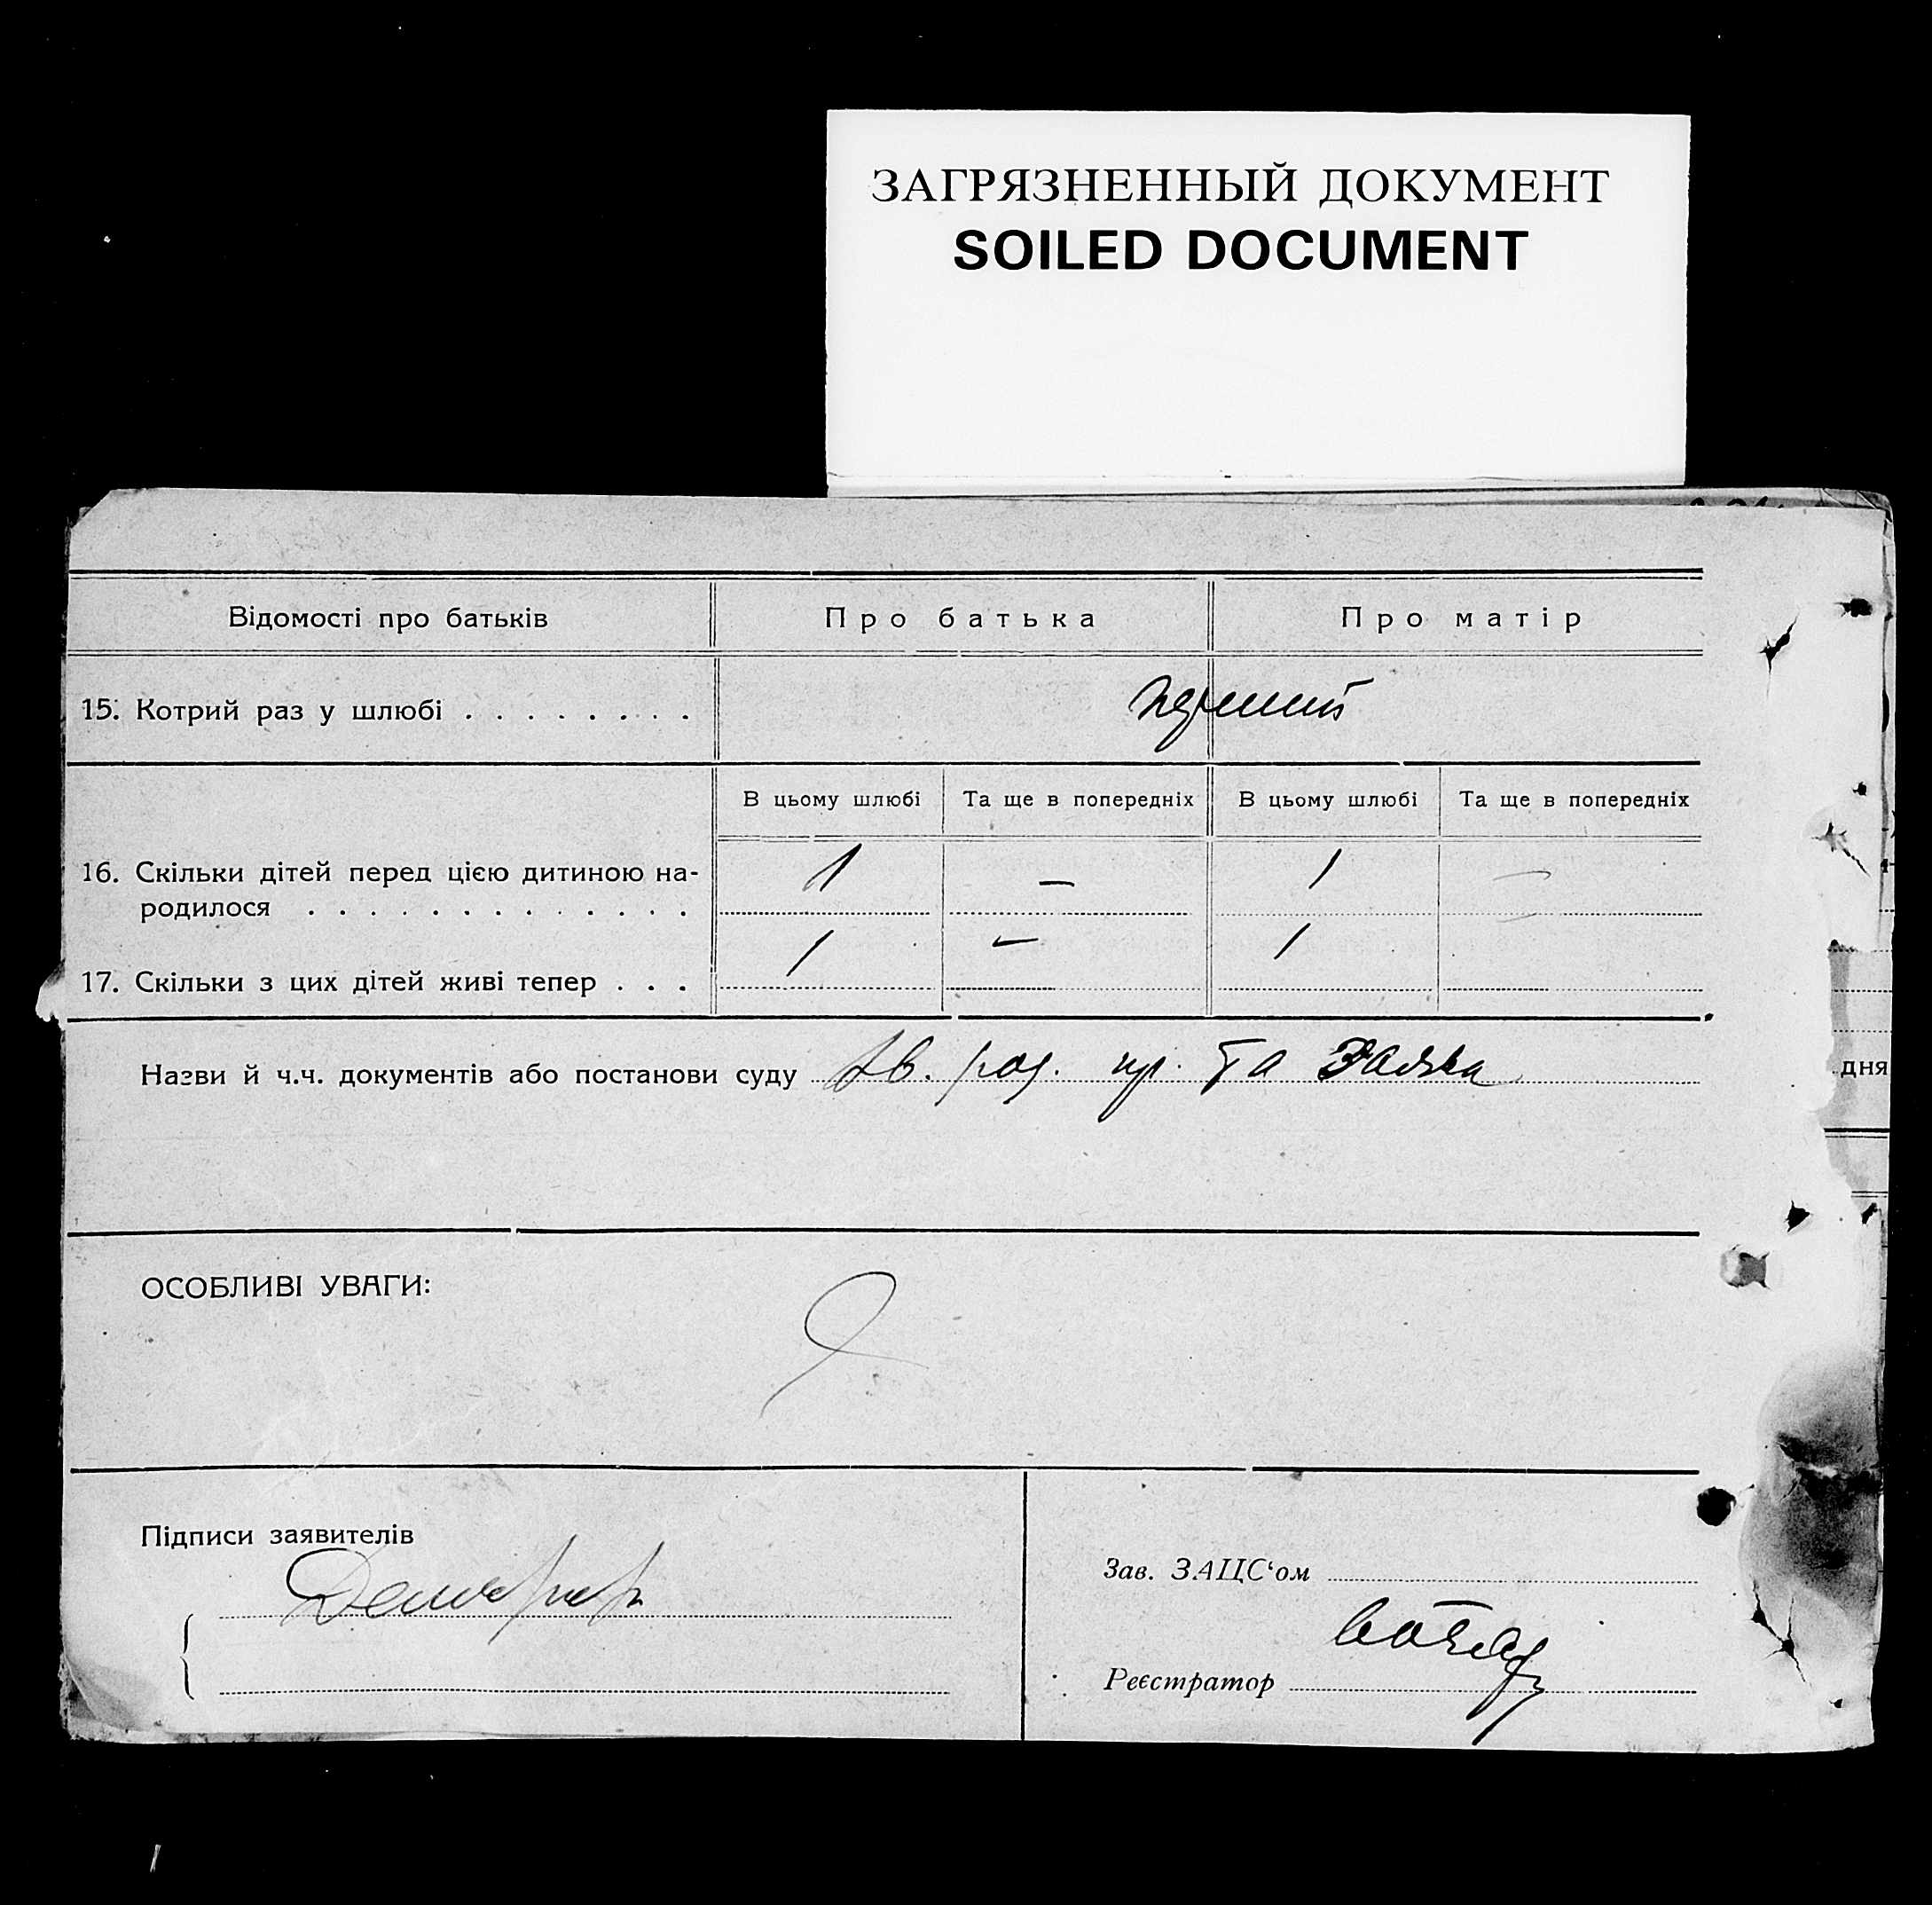 ЗАГРЯЗНЕННЫЙ ДОКУМЕНТ
SOILED DOCUMENT
Відомості про батьків Про батька Про матір
15. Котрий раз у шлюбі . . . . . . . . перший
В цьому шлюбі Та ще в попередніх В цьому шлюбі Та ще в попередніх
16. Скільки дітей перед цією дитиною на- 1 — 1 —
родилося . . . . . . . . . . . . .
17. Скільки з цих дітей живі тепер . . . 1 — 1
Назви й ч.ч. документів або постанови суду род. та Заява
дня
ОСОБЛИВІ УВАГИ:
Підписи заявителів
Зав. ЗАЦС‘ом
Реєстратор